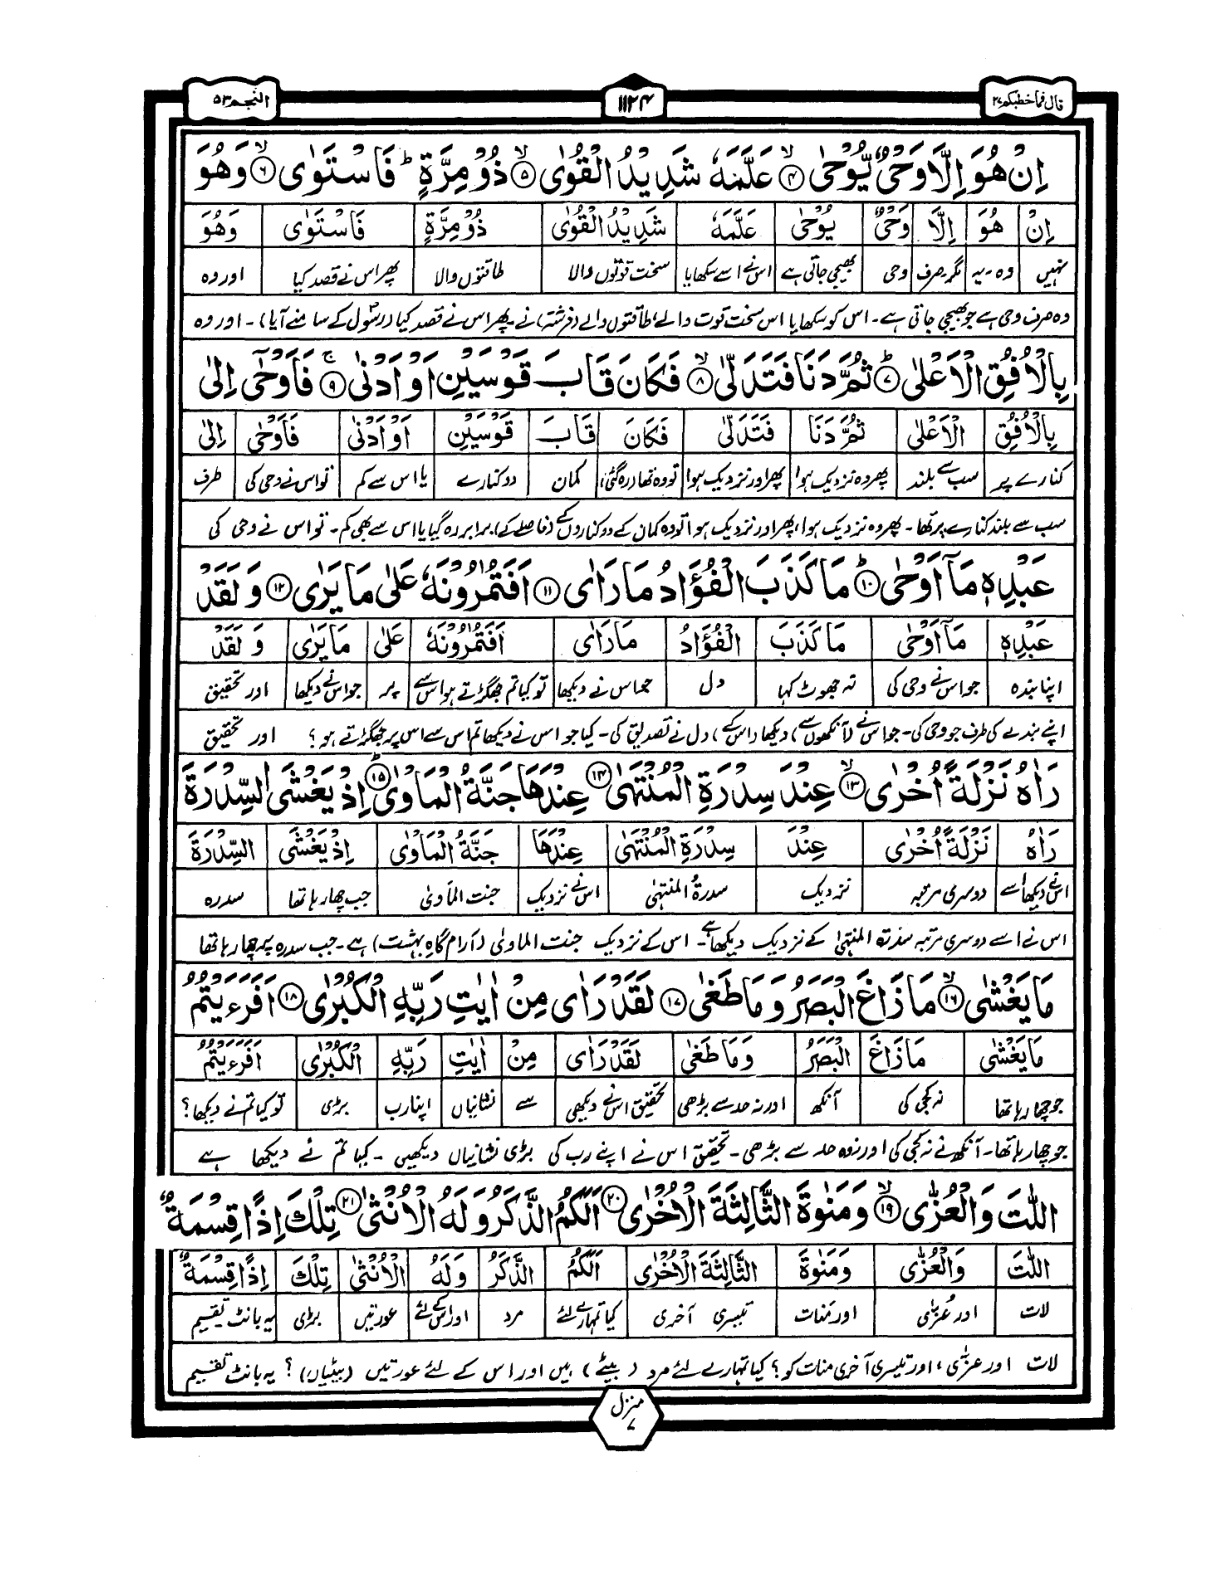 قال فما خطبکم ۲۷
۱۱۲۴
النجم ۵۳
اِنْ هُوَ اِلَّا وَحْیٌ یُّوْحٰی ۙ﴿۴﴾ عَلَّمَهٗ شَدِیْدُ الْقُوٰی ۙ﴿۵﴾ ذُوْ مِرَّةٍ ؕ فَاسْتَوٰی ۙ﴿۶﴾ وَهُوَ
اِنْ هُوَ اِلَّا وَحْیٌ یُوْحٰی عَلَّمَهٗ شَدِیْدُ الْقُوٰی ذُوْ مِرَّةٍ فَاسْتَوٰی وَهُوَ
نہیں وہ-یہ مگر-صرف وحی بھیجی جاتی ہے اس نے اسے سکھایا سخت قوتوں والا طاقتوں والا پھر اس نے قصد کیا اور وہ
وہ صرف وحی ہے جو بھیجی جاتی ہے۔ اس کو سکھایا اس سخت قوت والے، طاقتوں والے (فرشتہ) نے۔ پھر اس نے قصد کیا (رسول کے سامنے آیا)۔ اور وہ
بِالْاُفُقِ الْاَعْلٰی ؕ﴿۷﴾ ثُمَّ دَنَا فَتَدَلّٰی ۙ﴿۸﴾ فَکَانَ قَابَ قَوْسَیْنِ اَوْ اَدْنٰی ۚ﴿۹﴾ فَاَوْحٰۤی اِلٰی
بِالْاُفُقِ الْاَعْلٰی ثُمَّ دَنَا فَتَدَلّٰی فَکَانَ قَابَ قَوْسَیْنِ اَوْ اَدْنٰی فَاَوْحٰی اِلٰی
کنارے پر سب سے بلند پھر وہ نزدیک ہوا پھر اور نزدیک ہوا تو وہ تھا (رہ گئی) کمان دو کنارے یا اس سے کم تو اس نے وحی کی طرف
سب سے بلند کنارے پر تھا۔ پھر وہ نزدیک ہوا، پھر اور نزدیک ہوا تو وہ کمان کے دو کناروں کے (فاصلے کے) برابر رہ گیا یا اس سے بھی کم۔ تو اس نے وحی کی
عَبْدِهٖ مَاۤ اَوْحٰی ؕ﴿۱۰﴾ مَا کَذَبَ الْفُؤَادُ مَا رَاٰی ﴿۱۱﴾ اَفَتُمٰرُوْنَهٗ عَلٰی مَا یَرٰی ﴿۱۲﴾ وَ لَقَدْ
عَبْدِهٖ مَاۤ اَوْحٰی مَا کَذَبَ الْفُؤَادُ مَا رَاٰی اَفَتُمٰرُوْنَهٗ عَلٰی مَا یَرٰی وَ لَقَدْ
اپنا بندہ جو اس نے وحی کی نہ جھوٹ کہا دل جو اس نے دیکھا تو کیا تم جھگڑتے ہو اس سے پر جو اس نے دیکھا اور تحقیق
اپنے بندے کی طرف جو وحی کی۔ جو اس نے (آنکھوں سے) دیکھا (اس کے) دل نے تصدیق کی۔ کیا جو اس نے دیکھا تم اس سے اس پر جھگڑتے ہو؟ اور تحقیق
رَاٰهُ نَزْلَةً اُخْرٰی ۙ﴿۱۳﴾ عِنْدَ سِدْرَةِ الْمُنْتَهٰی ﴿۱۴﴾ عِنْدَهَا جَنَّةُ الْمَاْوٰی ؕ﴿۱۵﴾ اِذْ یَغْشَی السِّدْرَةَ
رَاٰهُ نَزْلَةً اُخْرٰی عِنْدَ سِدْرَةِ الْمُنْتَهٰی عِنْدَهَا جَنَّةُ الْمَاْوٰی اِذْ یَغْشَی السِّدْرَةَ
اس نے دیکھا اسے دوسری مرتبہ نزدیک سدرۃ المنتہیٰ اس نزدیک جنت الماوٰی جب چھا رہا تھا سدرہ
اس نے اسے دوسری مرتبہ سدرۃ المنتہیٰ کے نزدیک دیکھا ہے۔ اس کے نزدیک جنت الماوٰی (آرام گاہِ بہشت) ہے۔ جب سدرہ پر چھا رہا تھا
مَا یَغْشٰی ۙ﴿۱۶﴾ مَا زَاغَ الْبَصَرُ وَ مَا طَغٰی ﴿۱۷﴾ لَقَدْ رَاٰی مِنْ اٰیٰتِ رَبِّهِ الْکُبْرٰی ﴿۱۸﴾ اَفَرَءَیْتُمُ
مَا یَغْشٰی مَا زَاغَ الْبَصَرُ وَ مَا طَغٰی لَقَدْ رَاٰی مِنْ اٰیٰتِ رَبِّهِ الْکُبْرٰی اَفَرَءَیْتُمُ
جو چھا رہا تھا نہ کجی کی آنکھ اور نہ حد سے بڑھی تحقیق اس نے دیکھی سے نشانیاں اپنا رب بڑی تو کیا تم نے دیکھا؟
جو چھا رہا تھا۔ آنکھ نے نہ کجی کی اور نہ وہ حد سے بڑھی۔ تحقیق اس نے اپنے رب کی بڑی نشانیاں دیکھیں۔ کیا تم نے دیکھا ہے
اللّٰتَ وَالْعُزّٰی ۙ﴿۱۹﴾ وَ مَنٰوةَ الثَّالِثَةَ الْاُخْرٰی ﴿۲۰﴾ اَلَکُمُ الذَّکَرُ وَ لَهُ الْاُنْثٰی ﴿۲۱﴾ تِلْکَ اِذًا قِسْمَةٌ
اللّٰتَ وَالْعُزّٰی وَ مَنٰوةَ الثَّالِثَةَ الْاُخْرٰی اَلَکُمُ الذَّکَرُ وَ لَهُ الْاُنْثٰی تِلْکَ اِذًا قِسْمَةٌ
لات اور عزیٰ اور منات تیسری آخری کیا تمہارے لئے مرد اور اس کے لئے عورتیں بڑی یہ بانٹ تقسیم
لات اور عزیٰ، اور تیسری آخری منات کو؟ کیا تمہارے لئے مرد (بیٹے) ہیں اور اس کے لئے عورتیں (بیٹیاں)؟ یہ بانٹ تقسیم
منزل ۷